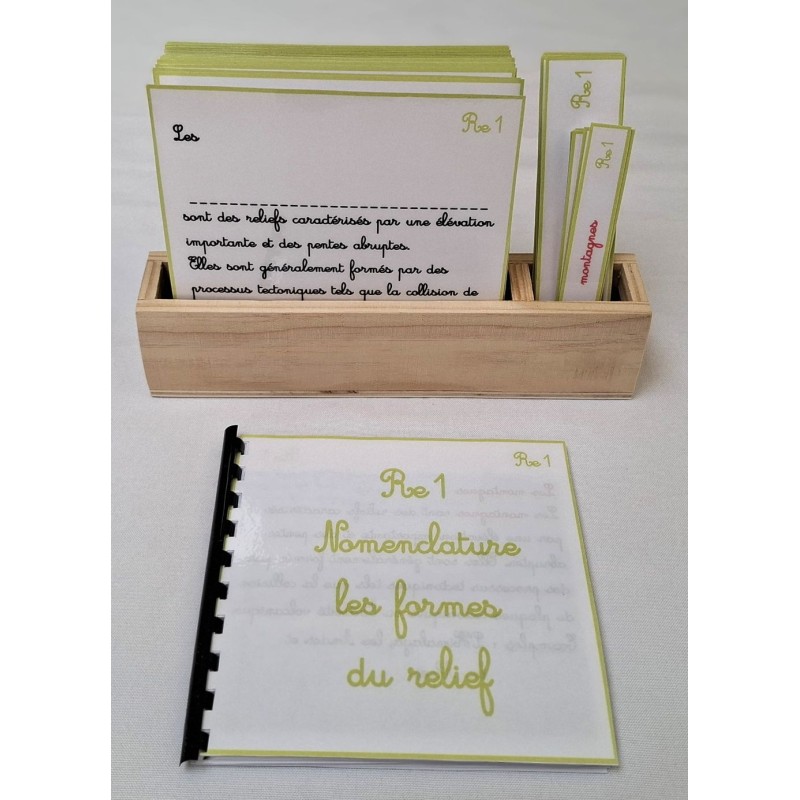 Re 1
Les
sont des reliefs caractérisés par une élévation
importante et des pentes abruptes.
Elles sont généralement formés par des
processus tectoniques tels que la collision de
Re 1
Re 1
montagnes
Re 1
Re 1
Nomenclature
les formes
du relief